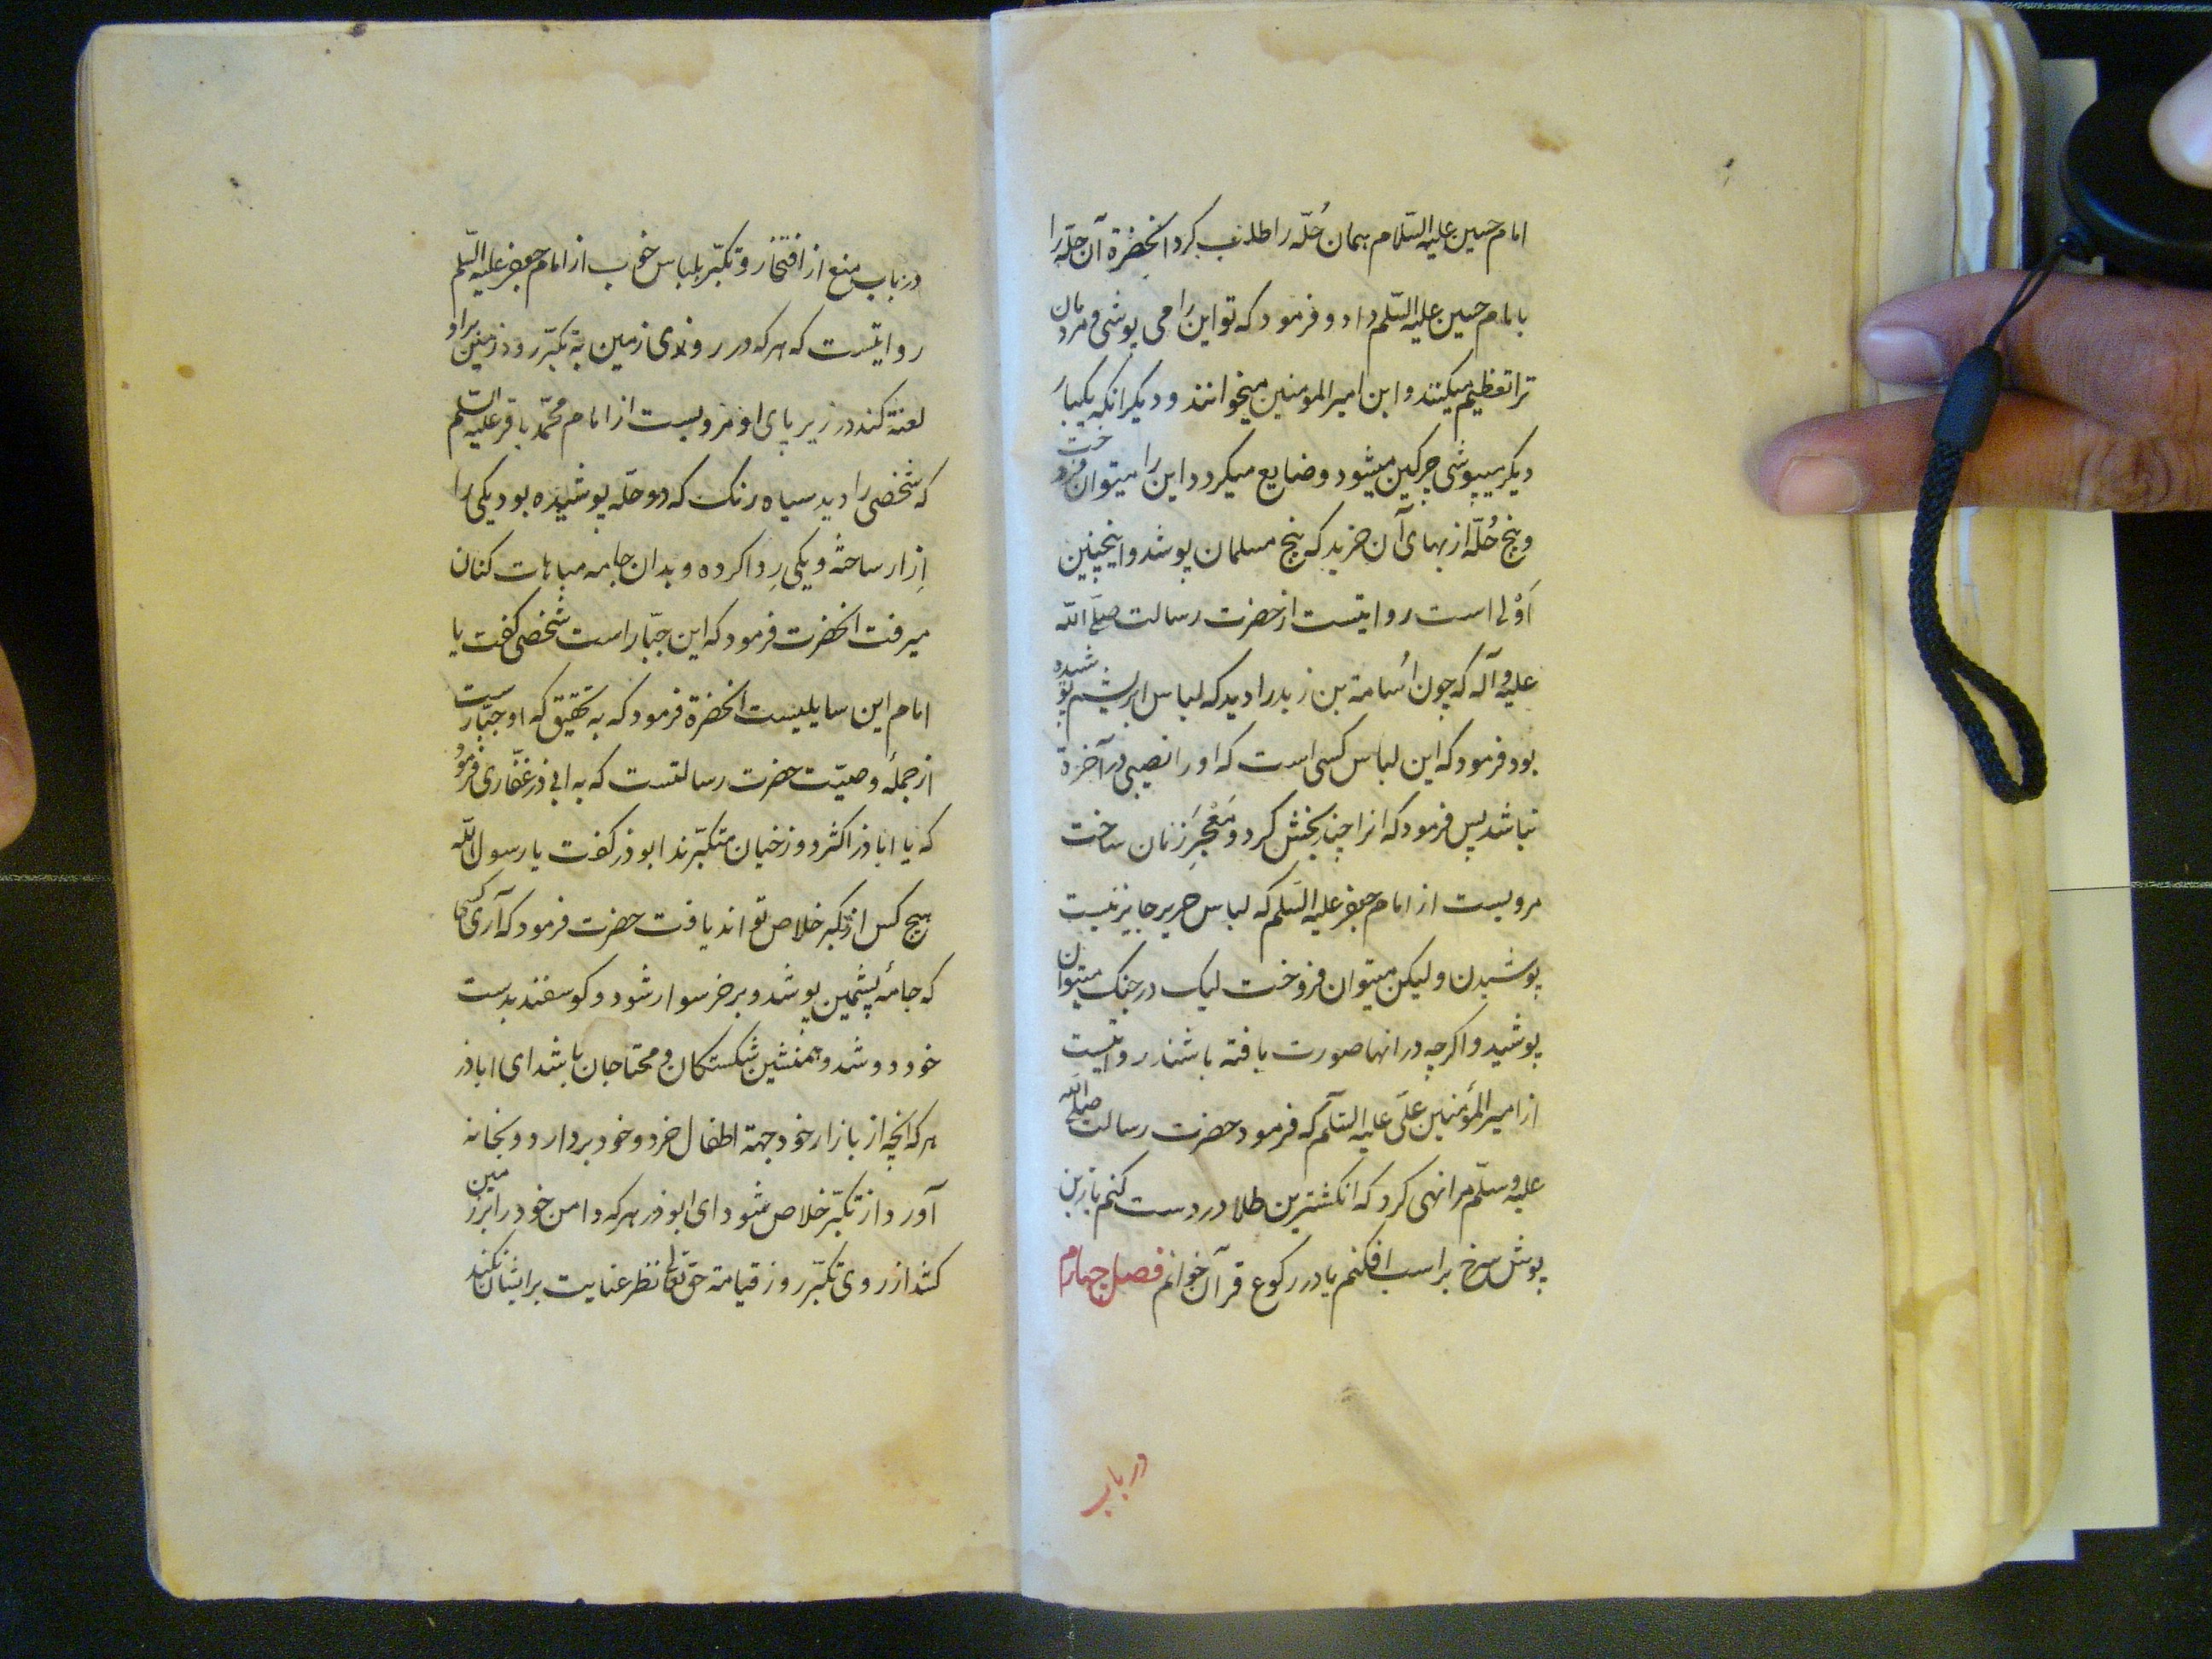 امام حسین علیه السّلام همان حُلّه را طلب کرد انحضرة آن حلّه را
بامام حسین علیه السّلم داد و فرمود که تو این را می پوشی و مردمان
ترا تعظیم میکنند و ابن امیر المومنین میخوانند و دیکر انکه یکبار
دیکر میپوشی چرکین میشود و ضایع میکردد و این را میتوان فروخت
و پنج حُلّه از بهای آن خرید که پنج مسلمان پوشد و اینچنین
اَوْلی است روایتست از حضرت رسالت صلّی اللّه
علیه و آله که چون اُسامة بن زید را دید که لباس ابریشم پوشیده
بود فرمود که این لباس کسی است که او را نصیبی در آخرة
نباشد پس فرمود که انرا بخش کرد و مَعْجَرِ زنان ساخت
مرویست از امام جعفر علیه السّلم که لباس حریر جایز نیست
پوشیدن و لیکن میتوان فروخت لیک در جنک میتوان
پوشید و اکرچه در انها صورت بافته باشند روایتست
از امیر المؤمنین علی علیه السّلم که فرمود حضرت رسالت صلی اللّه
علیه و سلّم مرا نهی کرد که انکشترین طلا در دست کنم یا زین
پوش سرخ بر اسب افکنم یا در رکوع قرآن خوانم فصل چهارم
در باب
در باب منع از افتخار و تکبّر بلباس خوب از امام جعفر علیه السّلم
روایتست که هر که در روی زمین به تکبّر رود زمین بر او
لعنة کند در زیر پای او مرویست از امام محمّد باقر علیه السّلم
که شخصی را دید سیاه رنک که دو حلّه پوشیده بود یکی را
اِزار ساخته و یکی رِدا کرده و بدان جامه مباهات کنان
میرفت انحضرت فرمود که این جبّار است شخصی کفت یا
امام این سایلیست انحضرة فرمود که به تحقیق که او جبّارست
از جملهٔ وصیّت حضرت رسالتست که به ابی ذر غفّاری فرمود
که یا اباذر اکثر دوزخیان متکبّرند ابوذر کفت یا رسول اللّه
هیچ کس از تکبر خلاص تواند یافت حضرت فرمود که آری کسی
که جامهٔ پشمین پوشد و بر خر سوار شود و کوسفند بدست
خود دوشد و همنشین شکستکان و محتاجان باشد ای اباذر
هر که انچه از بازار خود جهة اطفال خرد و خود بردارد و بخانه
آورد از تکبّر خلاص شود ای ابوذر هر که دامن خود را بر زمین
کشد از روی تکبّر روز قیامة حق تعالی نظر عنایت بر ایشان نکند